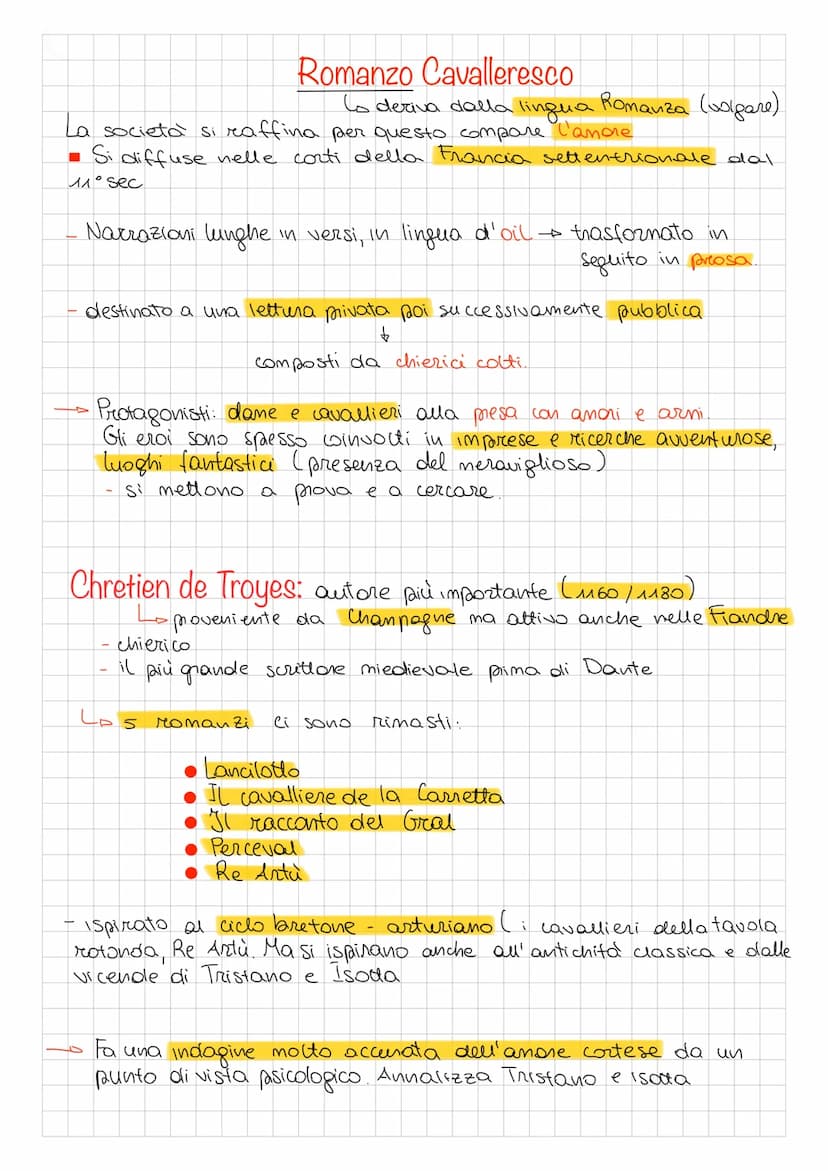 Romanzo Cavalleresco
↳ deriva dalla lingua Romanza (volgare)
La società si raffina per questo compare l'amore
▪ Si diffuse nelle corti della Francia settentrionale dal
11° sec
- Narrazioni lunghe in versi, in lingua d'oil → trasformato in
seguito in prosa.
- destinato a una lettura privata poi successivamente pubblica
↓
composti da chierici colti.
→ Protagonisti: dame e cavallieri alla presa con amori e armi.
Gli eroi sono spesso coinvolti in imprese e ricerche avventurose,
luoghi fantastici (presenza del meraviglioso)
- si mettono a prova e a cercare.
Chretien de Troyes: autore più importante (1160/1180)
↳ proveniente da Champagne ma attivo anche nelle Fiandre
- chierico
- il più grande scrittore miedievale prima di Dante
↳ 5 romanzi ci sono rimasti:
• Lancilotto
• Il cavalliere de la Carretta
• Il racconto del Gral
• Perceval
• Re Artù
- ispirato al ciclo bretone - arturiano ( i cavallieri della tavola
rotonda, Re Artù. Ma si ispirano anche all'antichità classica e dalle
vicende di Tristano e Isotta
→ Fa una indagine molto accurata dell'amore cortese da un
punto di vista psicologico. Annalizza Tristano e isotta